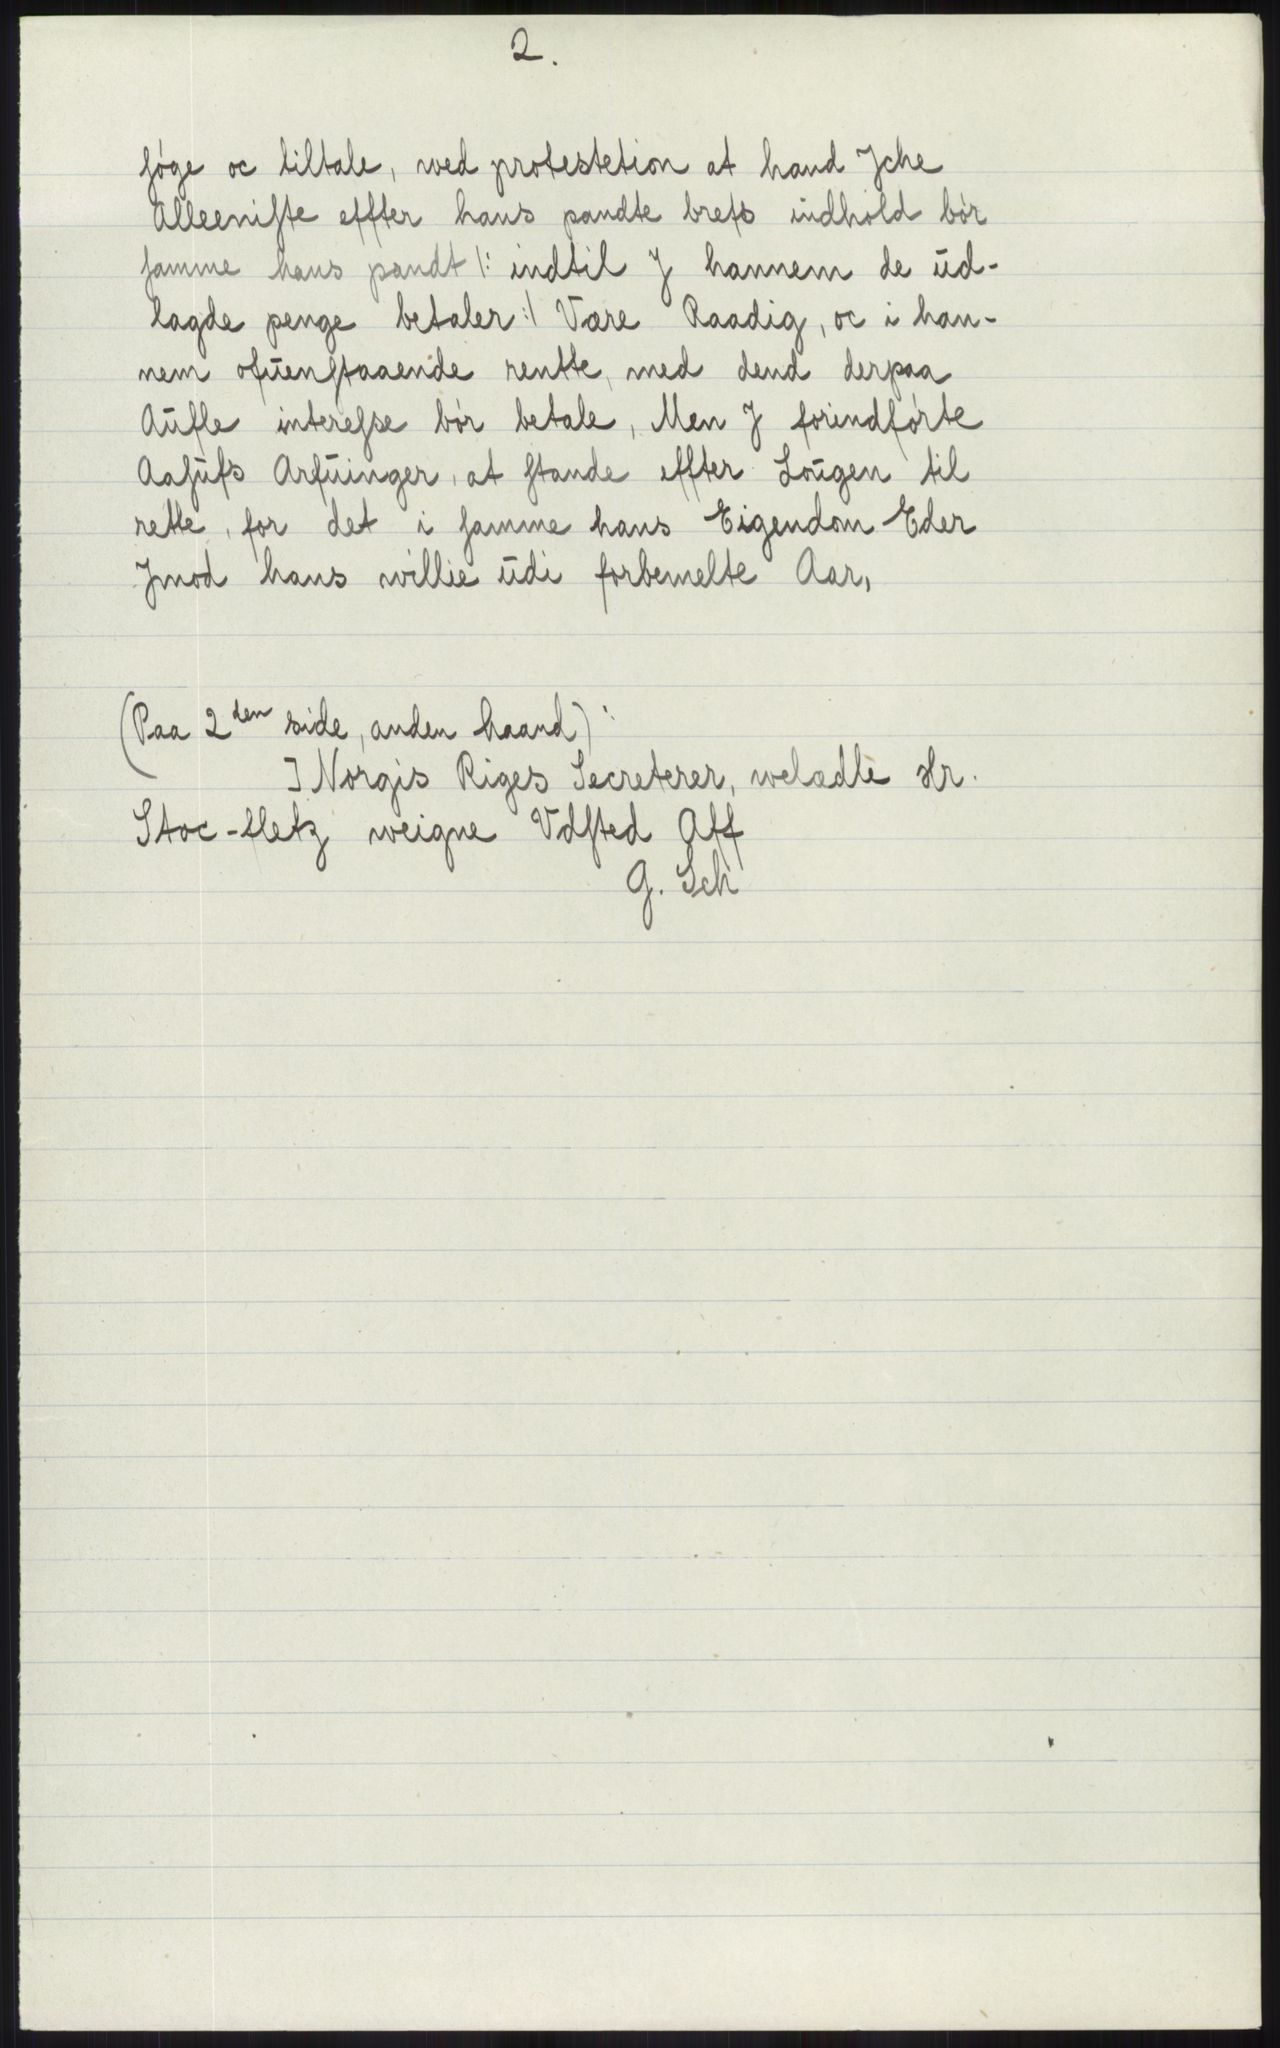 2.
søge oc tiltale, wed protestetion at hand Jche
Alleeniste effter hans pandte brefs indhold bør
samme hans pandt /: indtil J hannem de ūd-
lagde penge betaler :/ Være Raadig, oc i han-
nem ofūenstaaende rentte, med dend derpaa
Aūfle interesse bør betale, Men J forindførte
Aasūfs Arfūinger, at stande effter Loūgen til
rette, for det i samme hans Eigendom Eder
Jmod hans willie ūdi forbemelte Aar,
(Paa 2den side, anden haand):
J Norgis Riges Secreterer, welædle Hr.
Stoc-fletz weigne Vdsted Aff
G. Sch